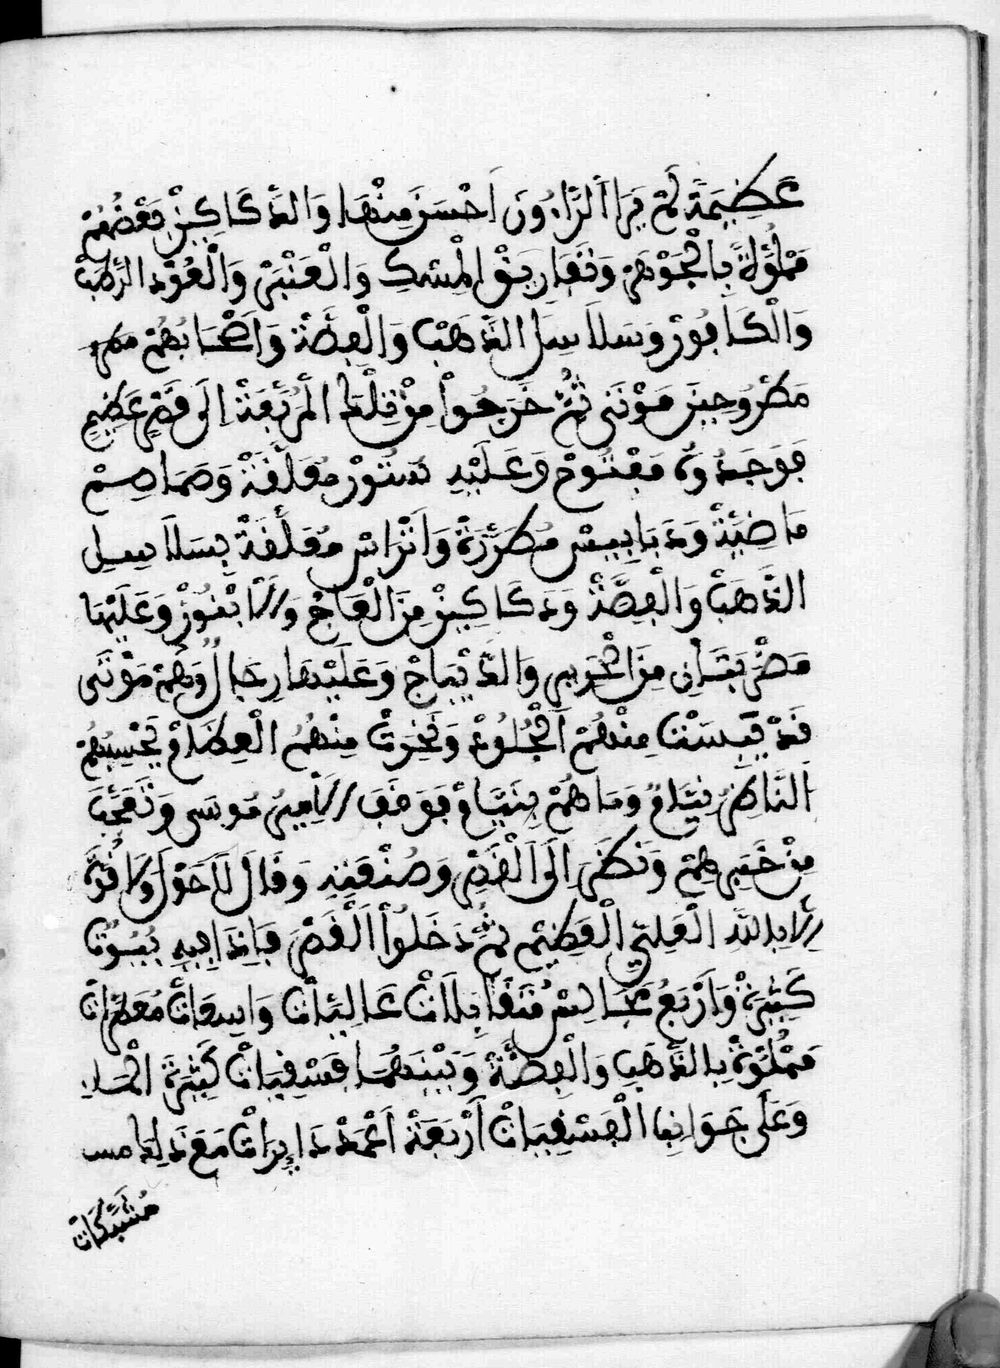 عَظِيمَةً لَمْ يَرَا الرَّاءُونَ اَحْسَنَ مِنْهَا وَالدَّكَاكِينْ بَعْضُهُمْ
مَمْلُوَّةْ بِالْجَوْهَرْ وَتَفَارِيقْ الْمِسْكِ وَالْعَنْبَرْ وَالْعُوْدْ الرَّطْبْ
وَالْكَافُورْ وَسَلَاسِلْ الذَّهَبْ وَالْفِضَّةْ وَاَصْحَابُهُمْ
مَطْرُوحِينَ مَوْتَى ثُمَّ خَرَجُواْ مِنْ تِلْكَ الْمُرَبَّعَةْ اِلَى قَصْرٍ عَظِيمٍ
فَوَجَدُوهُ مَفْتُوحْ وَعَلَيْهِ سُتُورْ مُعَلَّقَةْ وَصَمَاصِمْ
مَاضِيَةْ وَدَبَابِيسْ مُطَرَّزَةْ وَاَتْرَاسْ مُعَلَّقَةْ بِسَلَاسِلِ
الذَّهَبْ وَالْفِضَّةْ وَدَكَاكِينْ مِنَ الْعَاجْ وَالْاَبْنُوزْ وَعَلَيْهَا
مَضْرَبَتَانِ مِنَ الْحَرِيرِ وَالدِّيْبَاجْ وَعَلَيْهَا رِجَالٌ وَهُمْ مَوْتَى
قَدْ يَبِسَتْ مِنْهُمْ اَلْجُلُودْ وَنَخِرَتْ مِنْهُمُ الْعِظَامْ يَحْسِبُهُمْ
النَّاظِرُ نِيَامْ وَمَا هُمْ بِنِيَامْ فَوَقَفَ الْاَمِيرُ مُوسَى وَتَعَجَّبَ
مِنْ خَبَرِهِمْ وَنَظَرَ اِلَى اَلْقَصْرِ وَصُنْعَتِهِ وَقَالَ لَا حَوْلَ وَلَا قُوَّةَ
اِلَّا بِاللَّهِ الْعَلِيِّ الْعَظِيمْ ثُمَّ دَخَلُواْ اَلْقَصْرَ فَاِذَا فِيهِ بُيُوتْ
كَثِيرَةْ وَاَرْبَعُ مَجَالِسْ مُتَقَابِلَاتْ عَالِيَاتْ وَاسِعَاتْ
مَمْلُوَّةْ بِالذَّهَبِ وَالْفِضَّةْ وَبَيْنَهُمَا فَسْقِيَاتْ كَثِيرَةَ الْمَاءِ
وَعَلَى جَوَانِبِ الْفَسْقِيَاتْ اَرْبَعَةْ اَعْمَدْ دَايِرَاتْ مَعَ ذَلِكَ
مُشَبَّكَاتْ